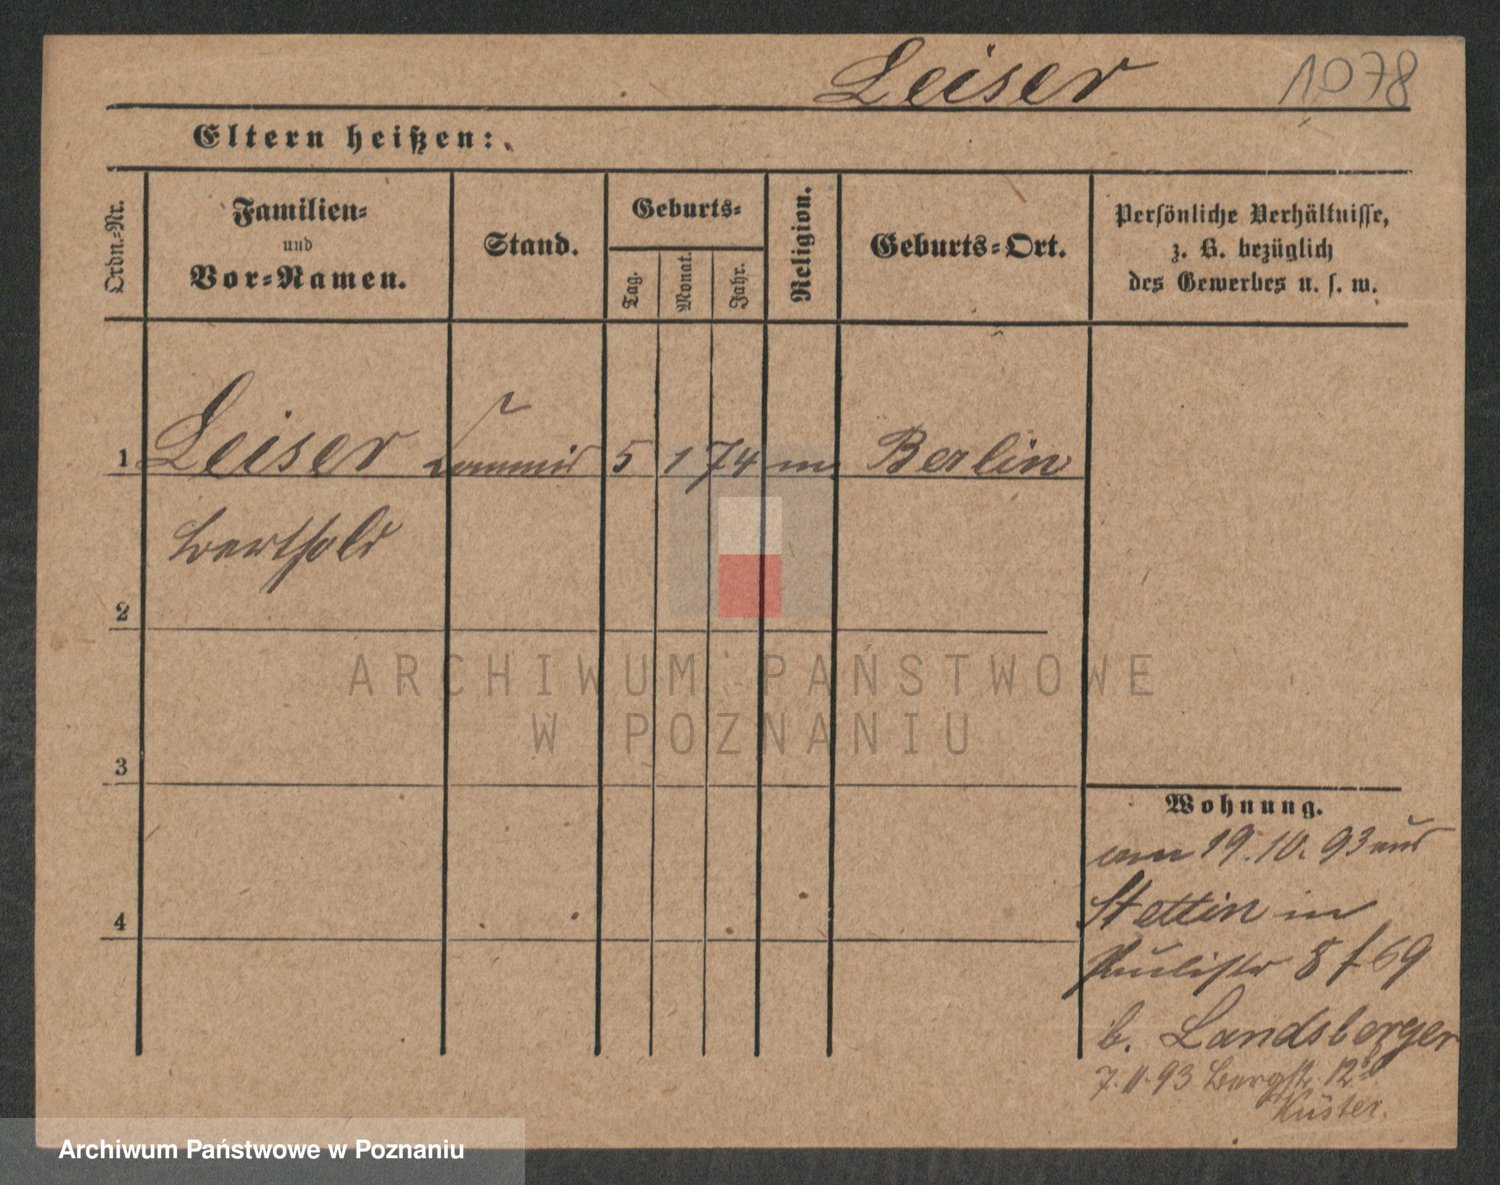 Leiser 1078
Eltern heißen:
Ordn.-Nr.
Familien-
und
Vor-Namen.
Stand.
Geburts-
Tag.
Monat.
Jahr.
Religion.
Geburts-Ort.
Persönliche Verhältnisse,
z. B. bezüglich
des Gewerbes u. s. w.
1 Leiser Commis 5 1 74 m Berlin
Berthold
2
3
4
Wohnung.
am 19.10.93 aus
Stettin in
Paulistr 8 f 69
b. Landsberger
7.11.93 Bergstr. 12
Küster.
ARCHIWUM PAŃSTWOWE
W POZNANIU
Archiwum Państwowe w Poznaniu